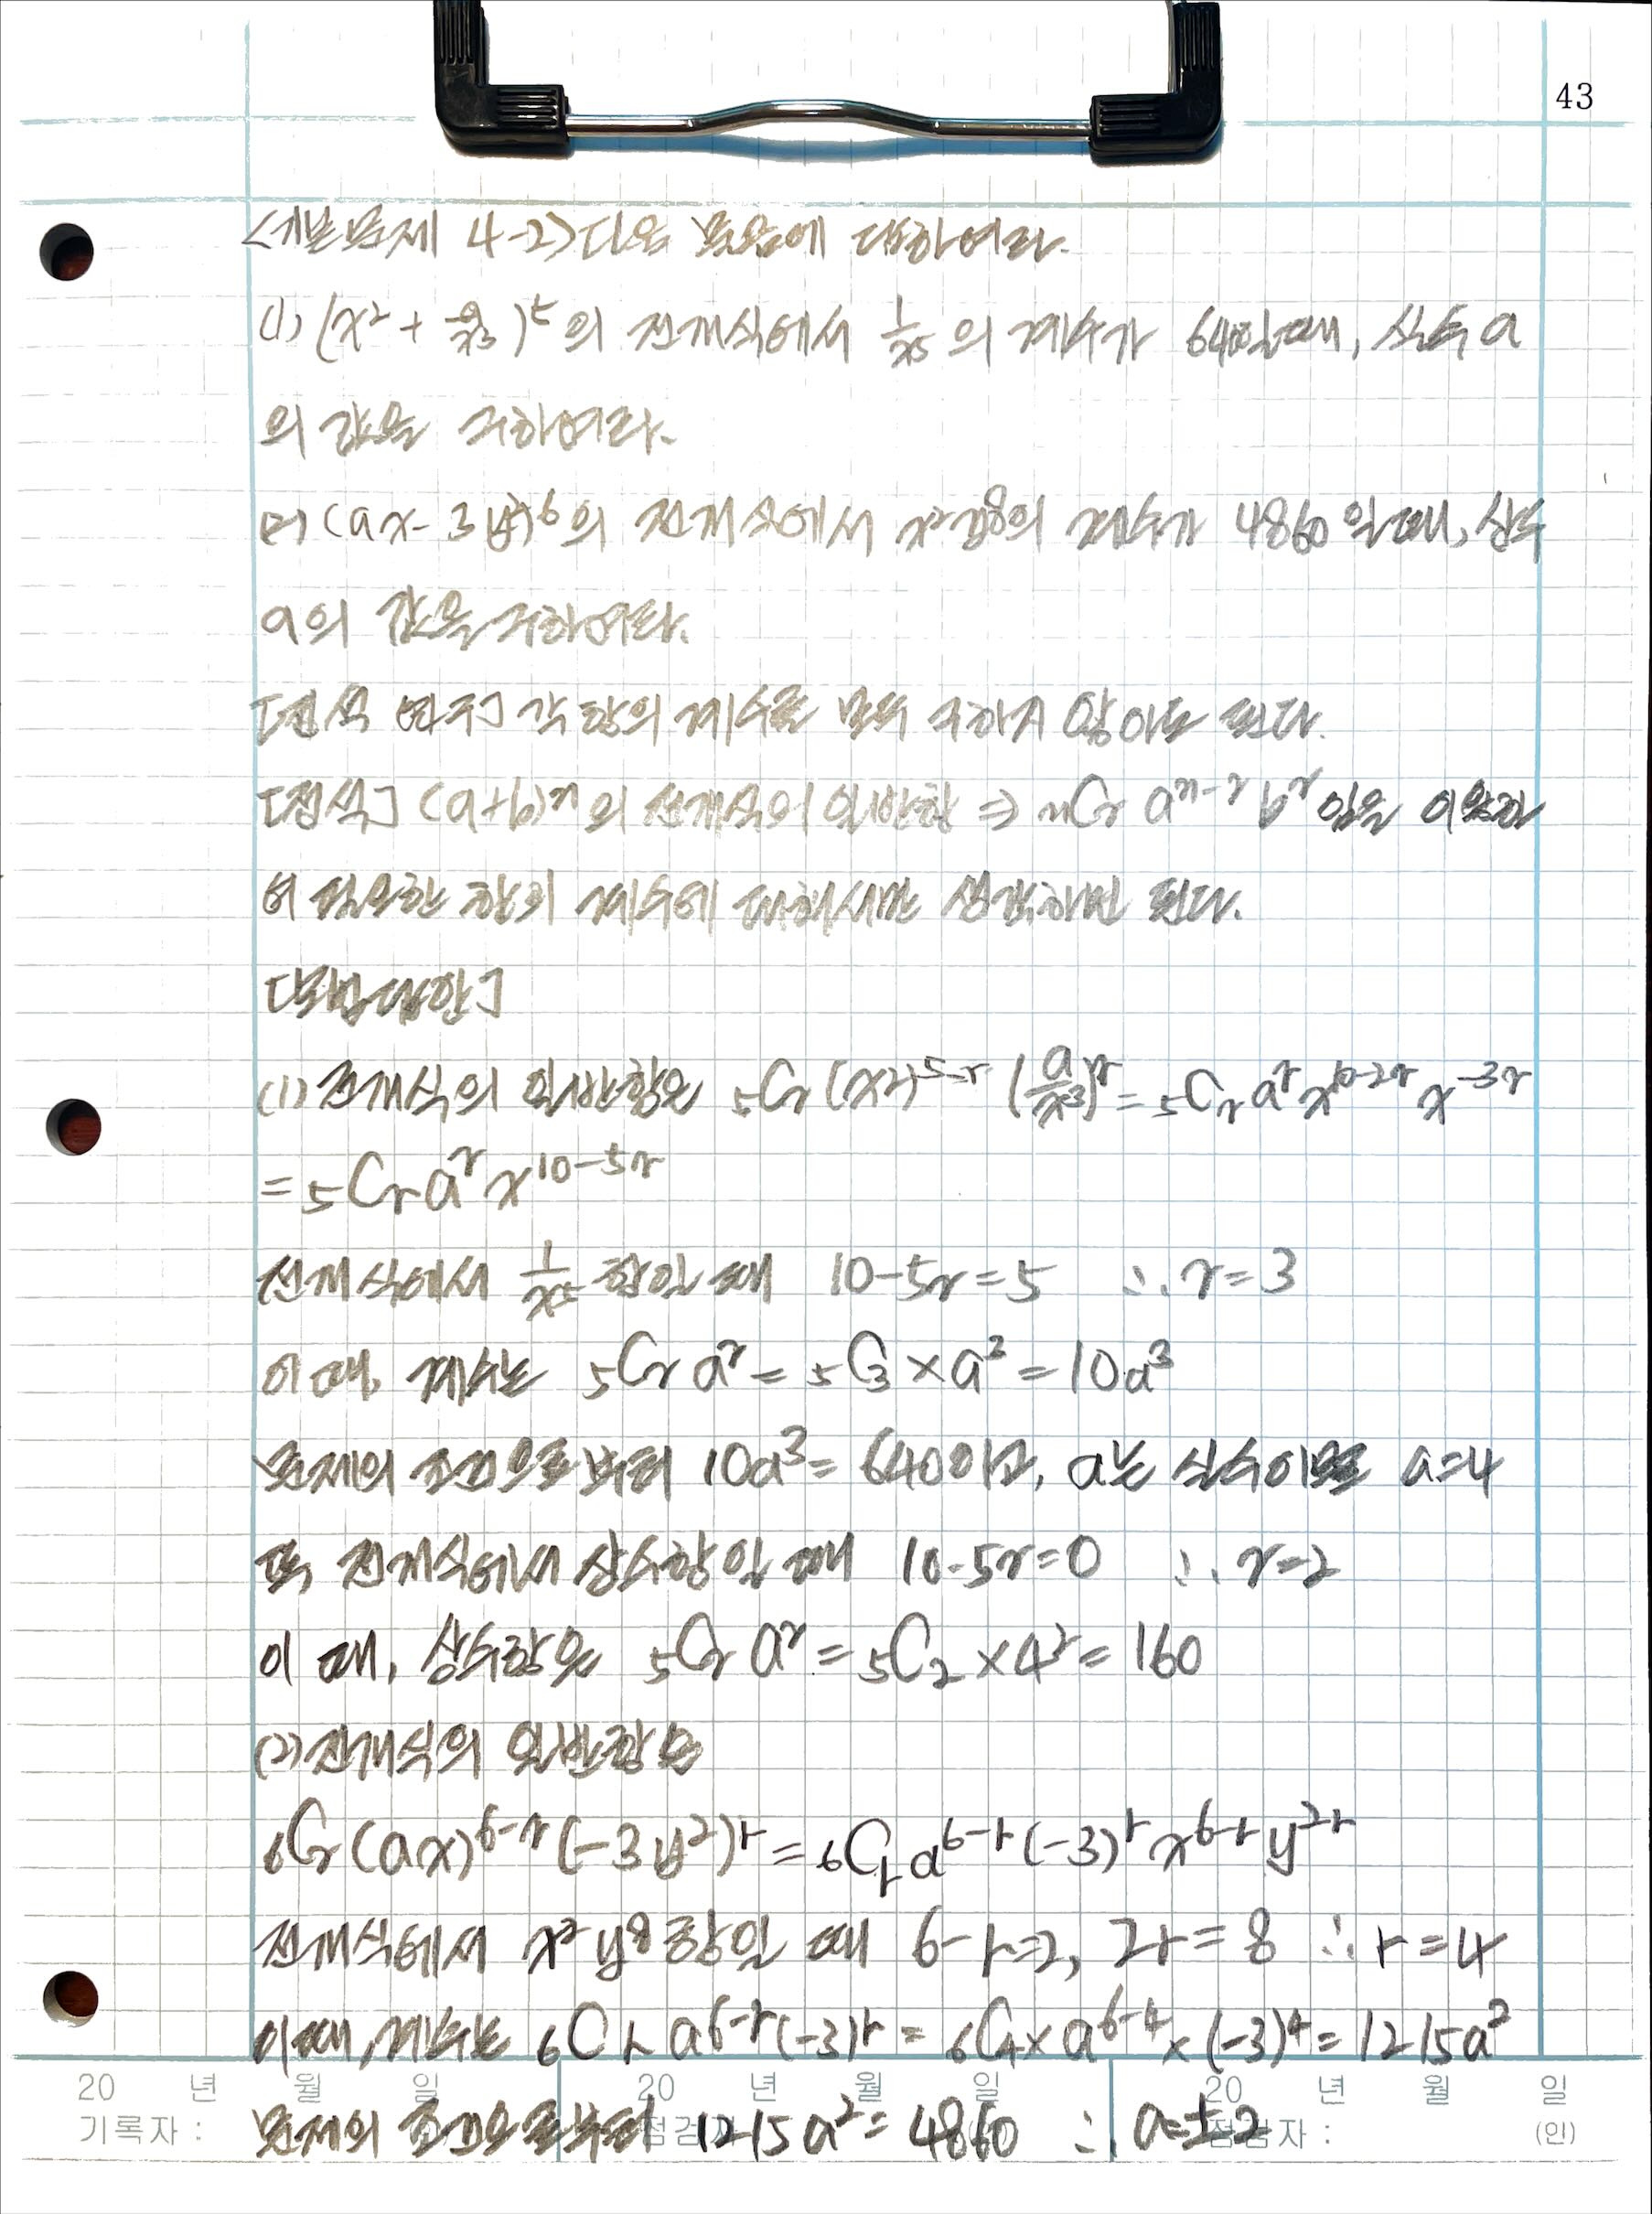 43
<기본문제 4-2> 다음 물음에 답하여라.
(1) (x² + a/x³)⁵의 전개식에서 1/x⁵의 계수가 640일 때, 실수 a
의 값을 구하여라.
(2) (ax - 3y²)⁶의 전개식에서 x²y⁸의 계수가 4860일 때, 상수
a의 값을 구하여라.
[정석 연구] 각 항의 계수를 모두 구하지 않아도 된다.
[정석] (a+b)ⁿ의 전개식의 일반항 ⇒ nCr aⁿ⁻ʳ bʳ 임을 이용하
여 필요한 항의 계수에 대해서만 생각하면 된다.
[모범답안]
(1) 전개식의 일반항은 ₅Cr (x²)⁵⁻ʳ (a/x³)ʳ = ₅Cr aʳ x¹⁰⁻²ʳ x⁻³ʳ
= ₅Cr aʳ x¹⁰⁻⁵ʳ
전개식에서 1/x⁵ 항일 때 10-5r=5 ∴ r=3
이 때, 계수는 ₅Cr aʳ = ₅C₃ × a³ = 10a³
문제의 조건으로부터 10a³ = 640이고, a는 실수이므로 a=4
또 전개식에서 상수항일 때 10-5r=0 ∴ r=2
이 때, 상수항은 ₅Cr aʳ = ₅C₂ × 4² = 160
(2) 전개식의 일반항은
₆Cr (ax)⁶⁻ʳ (-3y²)ʳ = ₆Cr a⁶⁻ʳ (-3)ʳ x⁶⁻ʳ y²ʳ
전개식에서 x²y⁸ 항일 때 6-r=2, 2r=8 ∴ r=4
이때, 계수는 ₆Cr a⁶⁻ʳ (-3)ʳ = ₆C₄ × a⁶⁻⁴ × (-3)⁴ = 1215a²
20 년 월 일 20 년 월 일 20 년 월 일
기록자 : 점검자 : (인)
문제의 조건으로부터 1215a² = 4860 ∴ a=±2